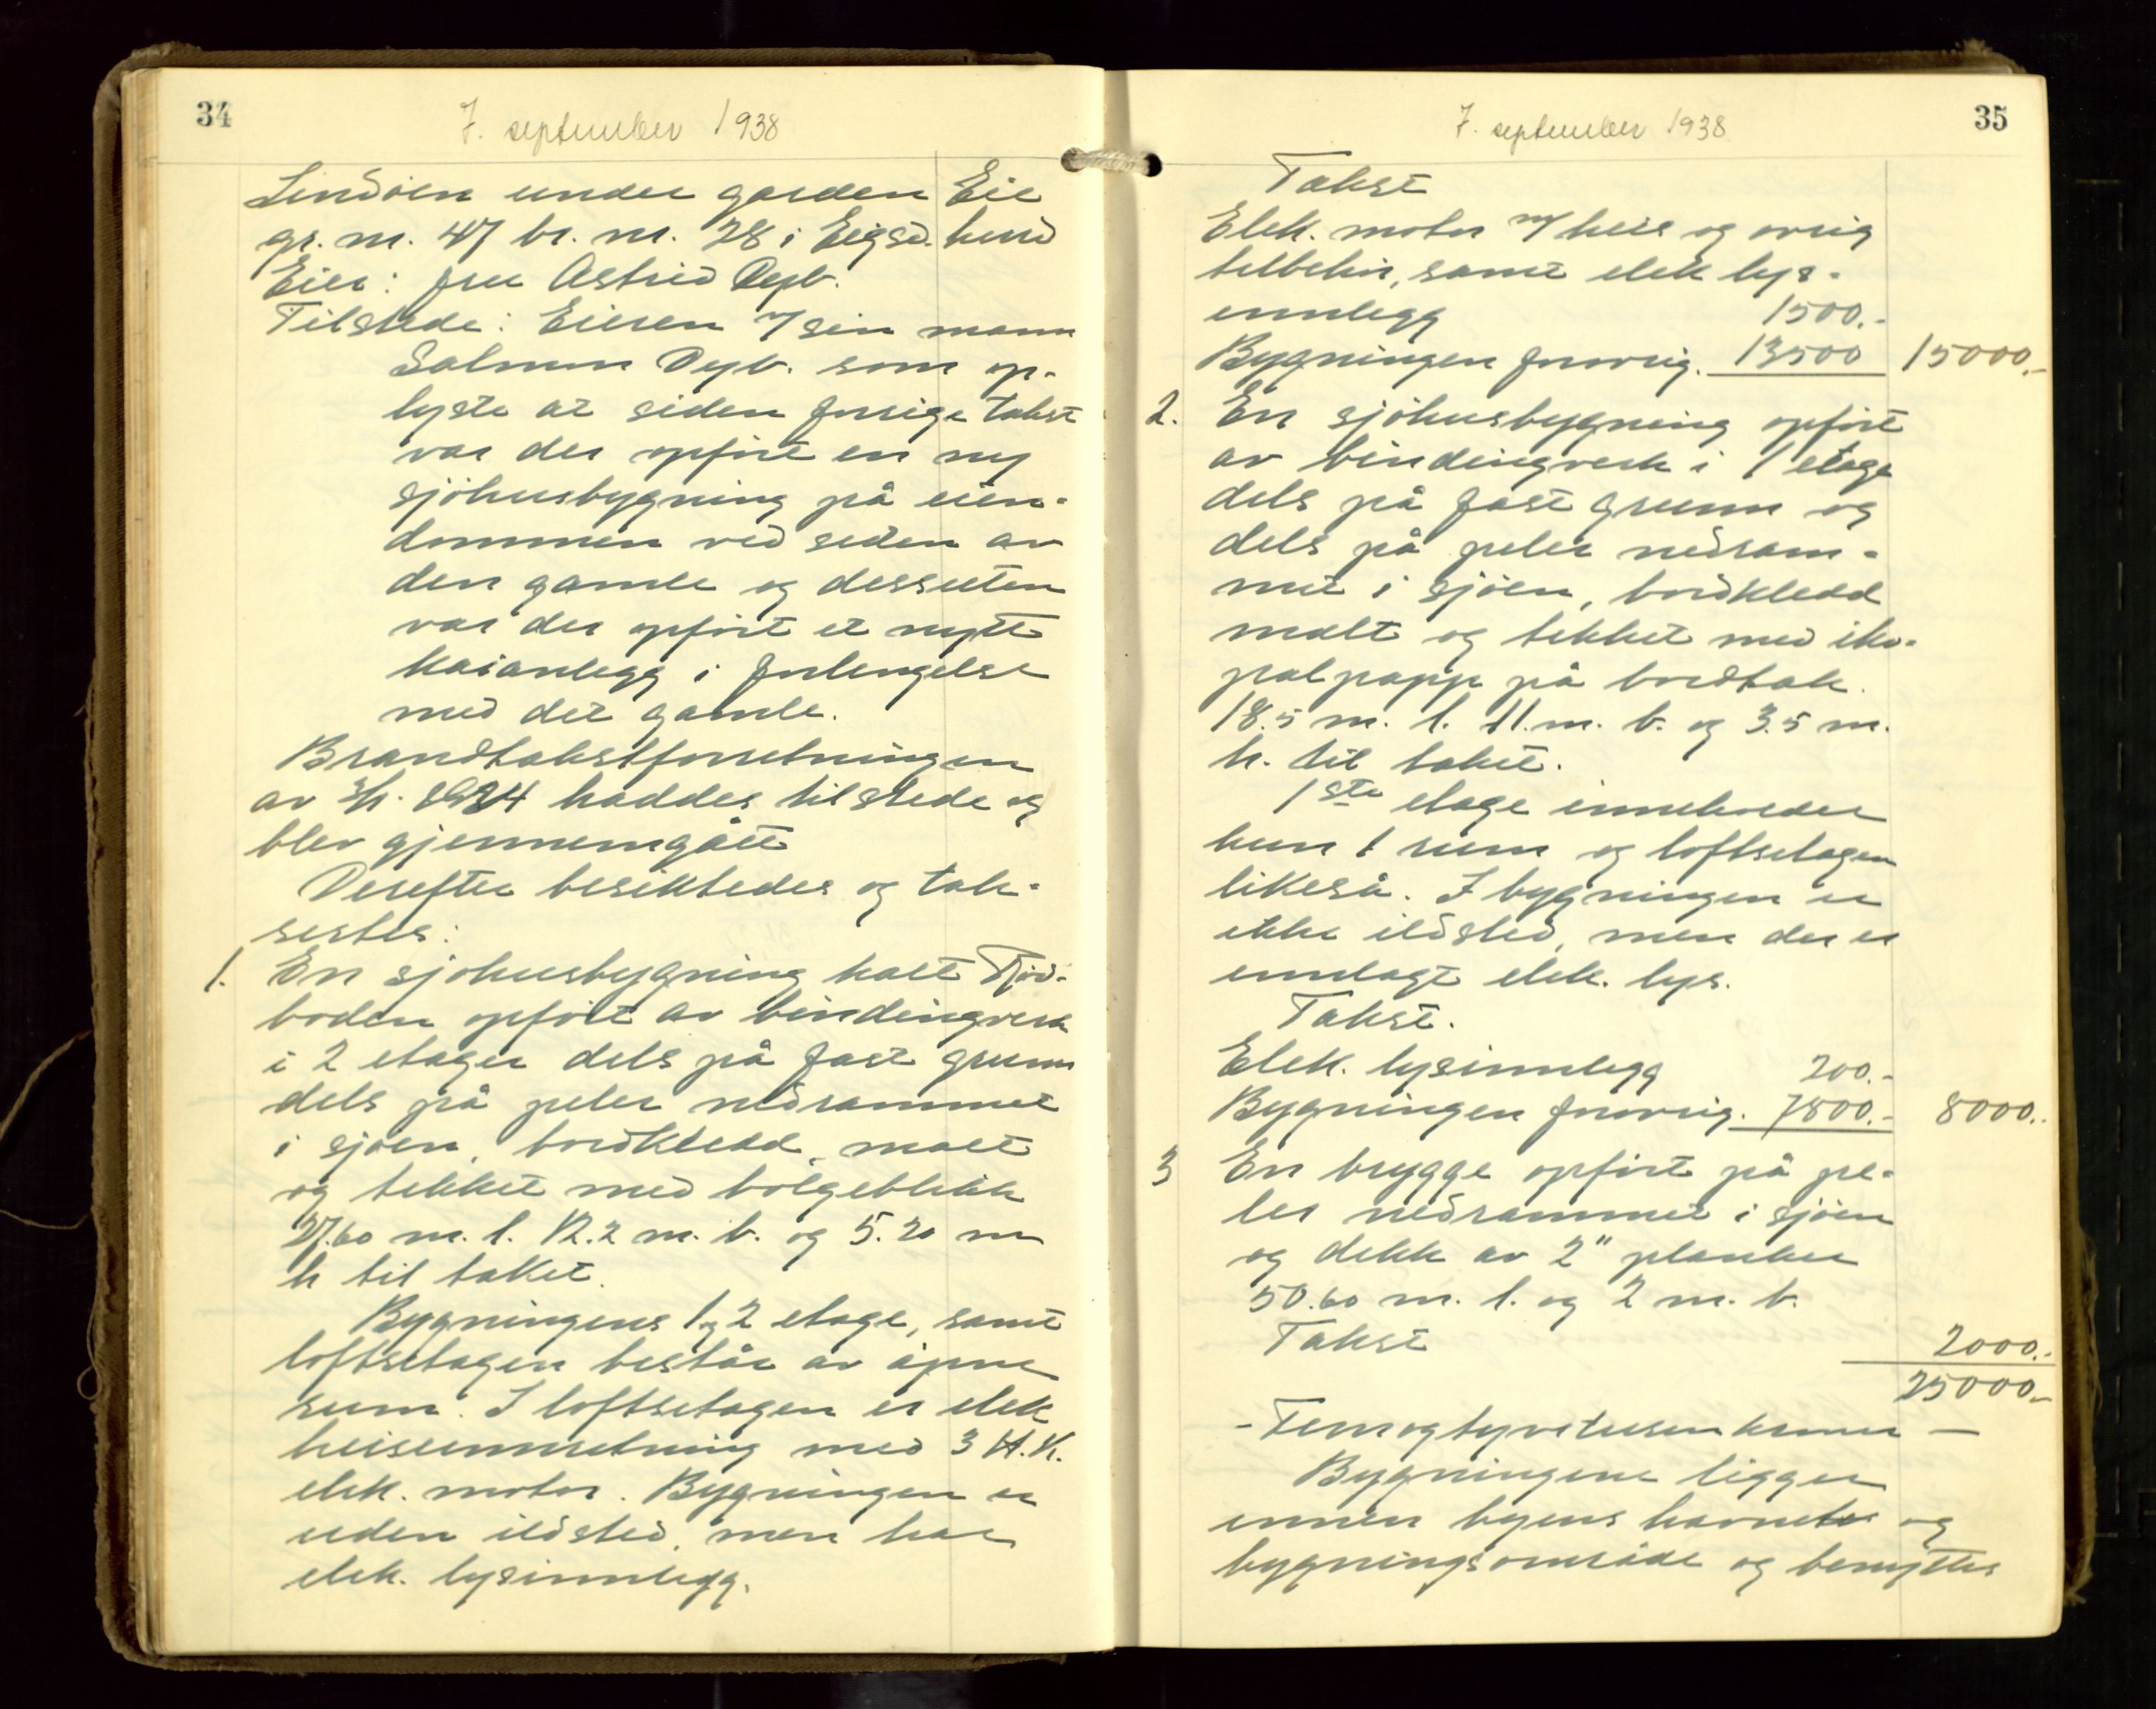 34
7. september 1938
Lindöen under garden Eie
gr. nr. 47 br. nr. 28 i Eigsd. herad
Eier: fru Astrid Dyb.
Tilstede: Eieren m/ sin mann
Salmun Dyb. som op-
lyste at siden forrige takst
var der opfört en ny
sjöhusbygning på eien-
dommen ved siden av
den gamle og dessuten
var der opfört et nytt
kaianlegg i forlengelse
med det gamle.
Brandtakstforretningen
av 1934 haddes tilstede og
blev gjennemgått
Derefter besiktedes og tak-
sertes:
1. En sjöhusbygning kalt
boden opfört av bindingverk
i 2 etager dels på fast grunn
dels på peler nedrammet
i sjöen, bordkledd, malt
og tekket med bölgeblikk
27.60 m. l. 12.2 m. b. og 5.20 m
h til taket.
Bygningens 1 og 2 etage, samt
loftsetagen består av åpne
rum. I loftsetagen er elek
heiseinnretning med 3 H.K.
elek. motor. Bygningen er
uden ildsted, men har
elek. lysinnlegg.
35
7. september 1938
Takst
Elek. motor m/ heis og övrig
tilbehör, samt elek lys-
innlegg 1500.-
Bygningen forövrig. 13500 15000.-
2. En sjöhusbygning opfört
av bindingverk i 1 etage
dels på fast grunn og
dels på peler nedram-
met i sjöen, bordkledd
malt og tekket med iko-
palpapp på bordtak.
18.5 m. l. 11. m. b. og 3.5 m.
h. til taket.
1ste etage inneholder
kun 1 rum og loftsetagen
likeså. I bygningen er
ikke ildsted, men der er
innlagt elek. lys.
Takst.
Elek. lysinnlegg 200.-
Bygningen forövrig. 7800.- 8000.-
3 En brygge opfört på pe-
ler nedrammet i sjöen
og dekk av 2" planker
50.60 m. l. og 2 m. b.
Takst 2000.-
25000.-
- Femogtyvetusen kroner -
Bygningene ligger
innen byens havne og
bygningsområde og benyttes